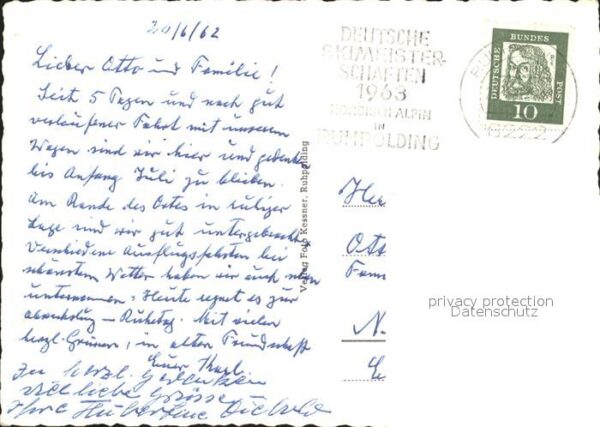 20/6/62
Lieber Otto und Familie!
Seit 5 Tagen und nach gut
verlaufener Fahrt mit unserem
Wagen sind wir hier und gedenken
bis Anfang Juli zu bleiben.
Am Rande des Ortes in ruhiger
Lage sind wir gut untergebracht
Verschiedene Ausflugsfahrten bei
schönstem Wetter haben wir auch schon
unternommen. Heute regnet es zur
Abwechslung - Ruhetag. Mit vielen
herzl. Grüssen, in alter Freundschaft
Euer Karl
Zu herzl. Gedenken
viel liebe Grüsse
Ihre Hubertine
Verlag Foto Kessner, Ruhpolding
DEUTSCHE
SKIMEISTER-
SCHAFTEN
1963
NORDISCH ALPIN
IN
RUHPOLDING
DEUTSCHE BUNDESPOST
10
8222
Her
Ott
Fam
N.
privacy protection
Datenschutz